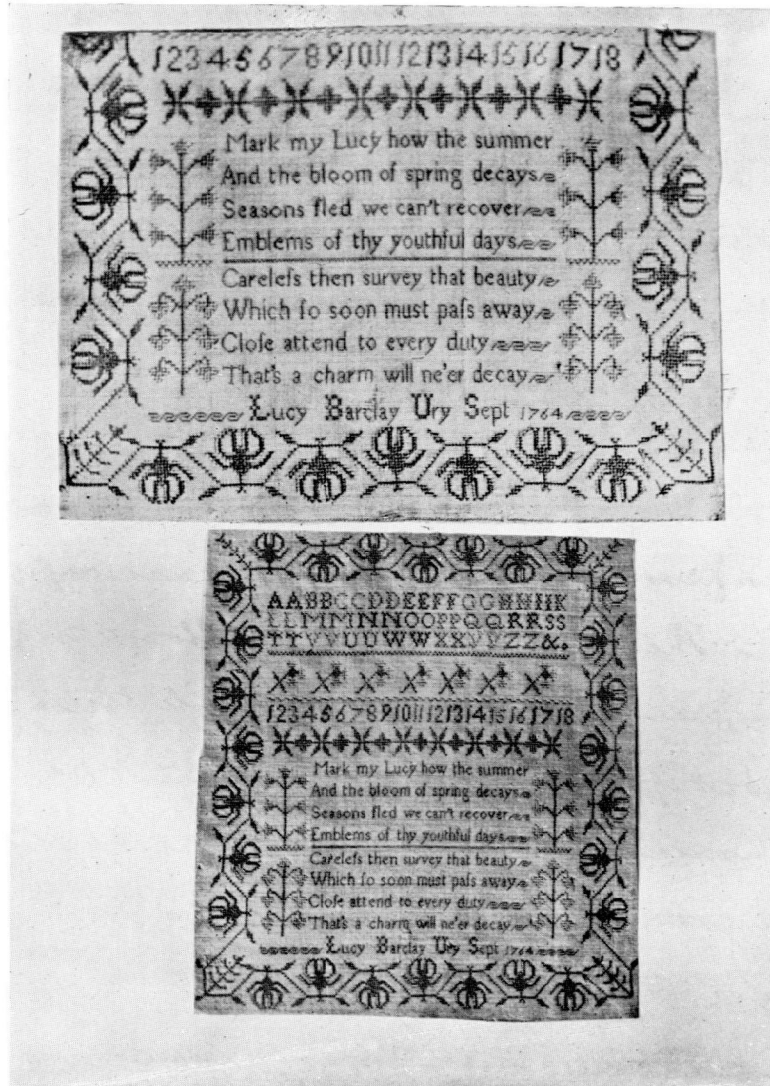 1 2 3 4 5 6 7 8 9 10 11 12 13 14 15 16 17 18
Mark my Lucy how the summer
And the bloom of spring decays
Seasons fled we can't recover
Emblems of thy youthful days
Carelefs then survey that beauty
Which ſo soon must paſs away
Cloſe attend to every duty
That's a charm will ne'er decay
Lucy Barclay Ury Sept 1764
AABBCCDDEEFFGGHHIIK
LLMMNNOOPPQQRRSS
TTVVUUWWXXYYZZ&.
1 2 3 4 5 6 7 8 9 10 11 12 13 14 15 16 17 18
Mark my Lucy how the summer
And the bloom of spring decays
Seasons fled we can't recover
Emblems of thy youthful days
Carelefs then survey that beauty
Which ſo soon must paſs away
Cloſe attend to every duty
That's a charm will ne'er decay
Lucy Barclay Ury Sept 1764